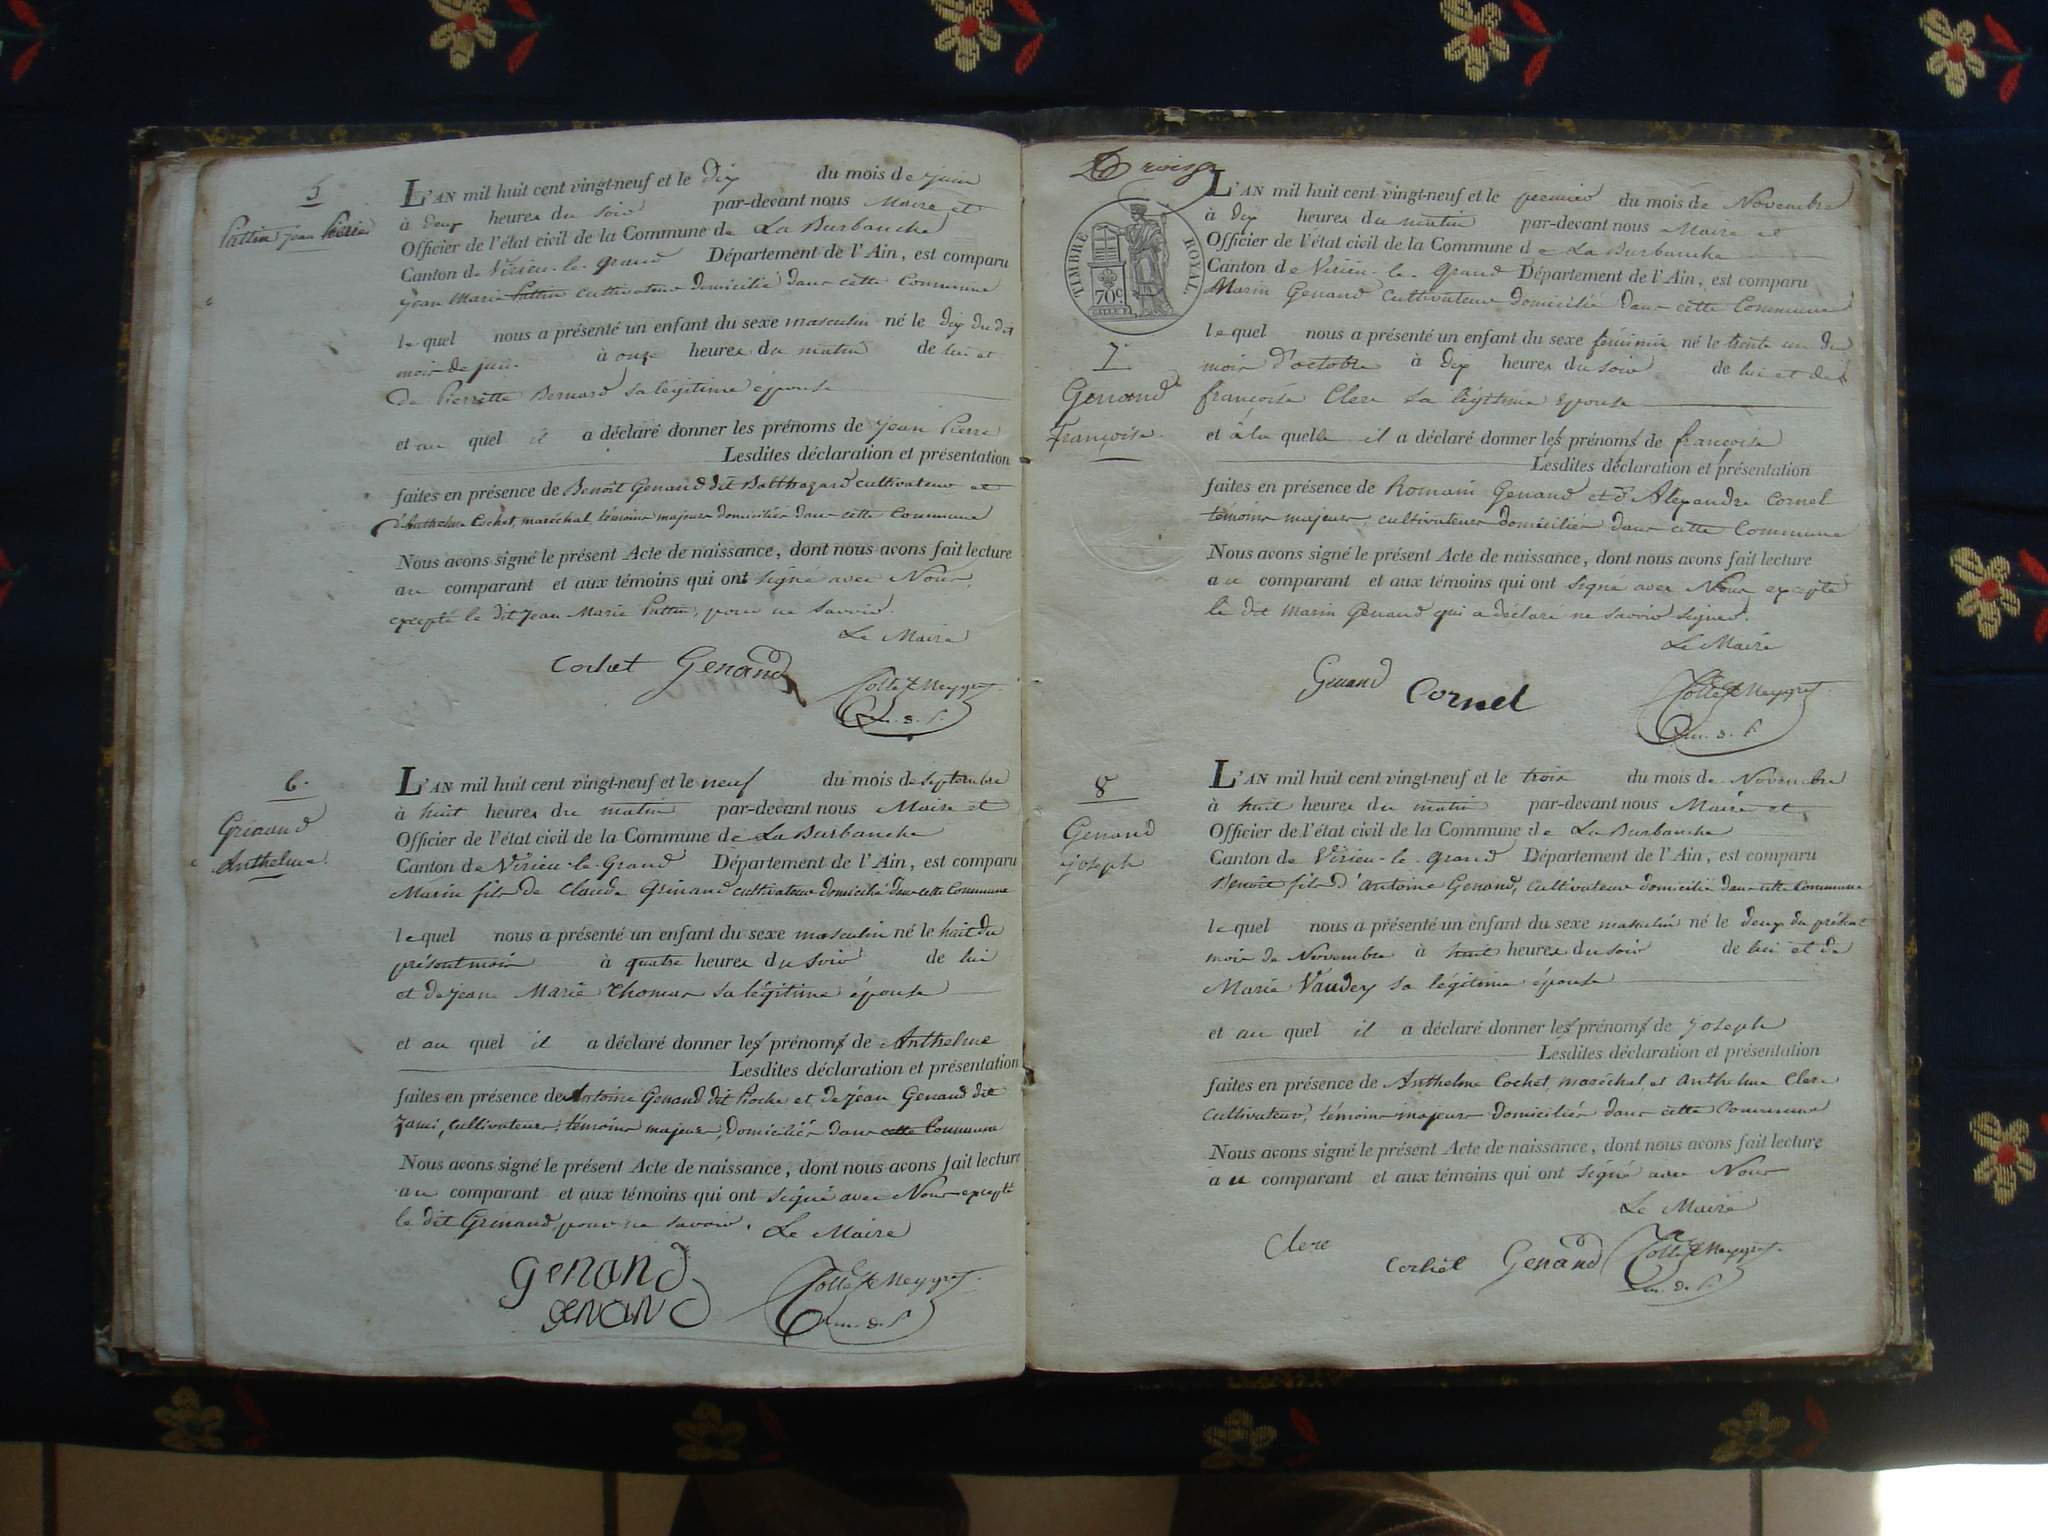 5
Pattin jean Pierre
L'AN mil huit cent vingt-neuf et le dix du mois de juin
à deux heures du soir par-devant nous Maire et
Officier de l'état civil de la Commune de La Burbanche
Canton de Virieu-le-grand Département de l'Ain, est comparu
jean Marie Pattin cultivateur domicilié dans cette Commune
lequel nous a présenté un enfant du sexe masculin né le dix du dit
mois de juin à onze heures du matin de lui et
de Pierrette Bernard sa légitime épouse
et au quel il a déclaré donner les prénoms de jean Pierre
Lesdites déclaration et présentation
faites en présence de Benoit Genand dit Balthazard cultivateur et
d'Anthelme Cochet, maréchal témoins majeurs domiciliés dans cette Commune
Nous avons signé le présent Acte de naissance, dont nous avons fait lecture
au comparant et aux témoins qui ont signé avec Nous,
excepté le dit jean Marie Pattin, pour ne savoir.
Le Maire
Cochet Genand
6.
Grinand
Anthelme.
L'AN mil huit cent vingt-neuf et le neuf du mois de septembre
à huit heures du matin par-devant nous Maire et
Officier de l'état civil de la Commune de La Burbanche
Canton de Virieu-le-Grand Département de l'Ain, est comparu
Marin fils de Claude Grinand cultivateur domicilié dans cette Commune
lequel nous a présenté un enfant du sexe masculin né le huit du
présent mois à quatre heures du soir de lui
et de jeane Marie Thomas sa légitime épouse
et au quel il a déclaré donner les prénoms de Anthelme
Lesdites déclaration et présentation
faites en présence de Antoine Genand dit Pioche et de jean Genand dit
Zami, cultivateurs, témoins majeurs, domiciliés dans cette Commune
Nous avons signé le présent Acte de naissance, dont nous avons fait lecture
au comparant et aux témoins qui ont signé avec Nous excepté
le dit Grinand, pour ne savoir. Le Maire
Genand
Genand
TIMBRE ROYAL.
70c
7
Genand
Françoise.
L'AN mil huit cent vingt-neuf et le premier du mois de Novembre
à dix heures du matin par-devant nous Maire et
Officier de l'état civil de la Commune de La Burbanche
Canton de Virieu-le-Grand Département de l'Ain, est comparu
Marin Genand cultivateur domicilié dans cette Commune
lequel nous a présenté un enfant du sexe féminin né le trente un du
mois d'octobre à dix heures du soir de lui et de
françoise Clerc sa légitime épouse
et à la quelle il a déclaré donner les prénoms de françoise
Lesdites déclaration et présentation
faites en présence de Romain Genand et d'Alexandre Cornel
témoins majeurs, cultivateurs domiciliés dans cette Commune
Nous avons signé le présent Acte de naissance, dont nous avons fait lecture
au comparant et aux témoins qui ont signé avec Nous excepté
le dit Marin Genand qui a déclaré ne savoir signer.
Le Maire
Genand Cornel
8
Genand
joseph
L'AN mil huit cent vingt-neuf et le trois du mois de Novembre
à huit heures du matin par-devant nous Maire et
Officier de l'état civil de la Commune de La Burbanche
Canton de Virieu-le-grand Département de l'Ain, est comparu
Benoit fils d'antoine Genand, cultivateur domicilié dans cette Commune
lequel nous a présenté un enfant du sexe masculin né le deux du présent
mois de Novembre à huit heures du soir de lui et de
Marie Vaudey sa légitime épouse
et au quel il a déclaré donner les prénoms de joseph
Lesdites déclaration et présentation
faites en présence de Anthelme Cochet, maréchal, et anthelme Clerc
cultivateur, témoins majeurs domiciliés dans cette Commune
Nous avons signé le présent Acte de naissance, dont nous avons fait lecture
au comparant et aux témoins qui ont signé avec Nous
Le Maire
Clerc Cochet Genand